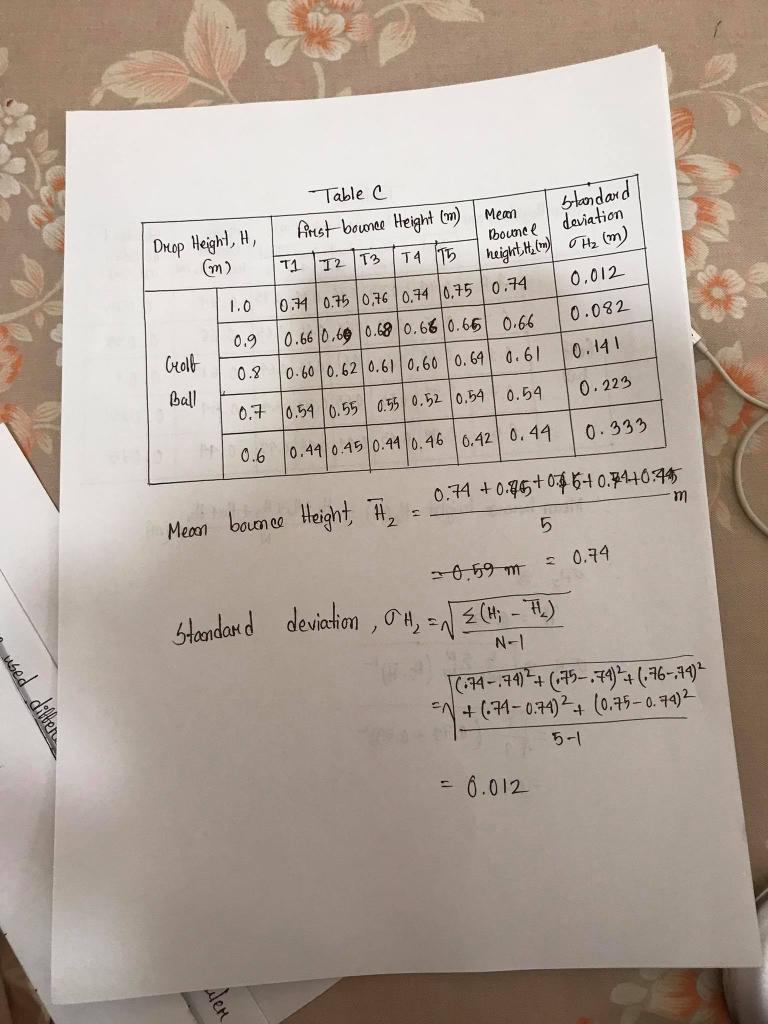 Table C
Drop Height, H, (m) First bounce Height (m) Mean Bounce height, H2 (m) Standard deviation σH2 (m)
T1 T2 T3 T4 T5
Golf Ball
1.0 0.74 0.75 0.76 0.74 0.75 0.74 0.012
0.9 0.66 0.69 0.68 0.66 0.65 0.66 0.082
0.8 0.60 0.62 0.61 0.60 0.64 0.61 0.141
0.7 0.54 0.55 0.55 0.52 0.54 0.54 0.223
0.6 0.44 0.45 0.44 0.46 0.42 0.44 0.333
Mean bounce Height, H̅2 = 0.74 + + 0.74 + / 5 m
= 0.59 m = 0.74
Standard deviation, σH2 = √ Σ(Hi - H̅2) / N-1
= √ (.74-.74)² + (.75-.74)² + (.76-.74)²
+ (.74-0.74)² + (0.75-0.74)²
5-1
= 0.012
used